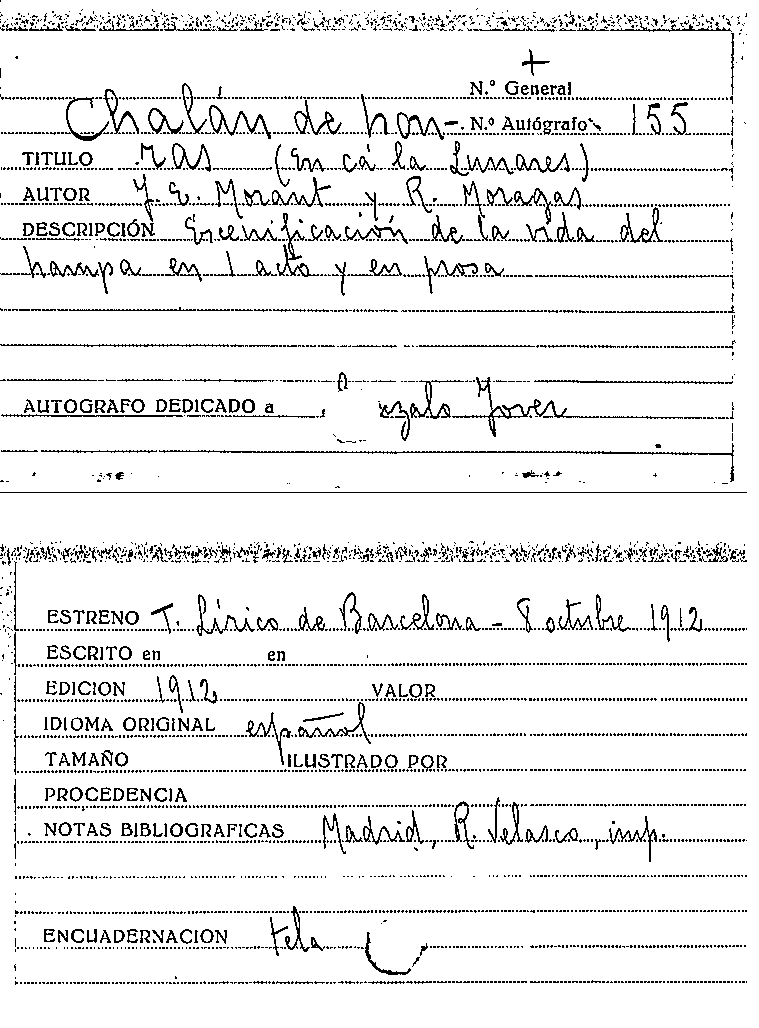 +
N.º General
Chalán de hon- N.º Autógrafo 155
TITULO ras (En cá la Lunares)
AUTOR J. E. Morant y R. Moragas
DESCRIPCIÓN Escenificación de la vida del
hampa en 1 acto y en prosa
AUTOGRAFO DEDICADO a Jover
ESTRENO T. Lírico de Barcelona - 8 octubre 1912
ESCRITO en en
EDICION 1912 VALOR
IDIOMA ORIGINAL español
TAMAÑO ILUSTRADO POR
PROCEDENCIA
NOTAS BIBLIOGRAFICAS Madrid, R. Velasco, imp.
ENCUADERNACION tela